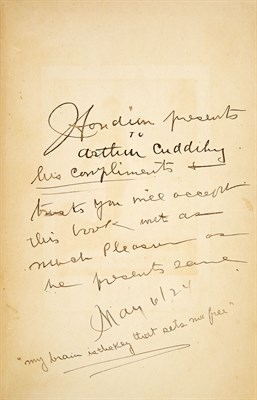 Houdini presents
TO
Arthur Cuddihy
his compliments +
trusts you will accept
this book with as
much Pleasure as
he presents same
May 6/24
"my brain is the key that sets me free"